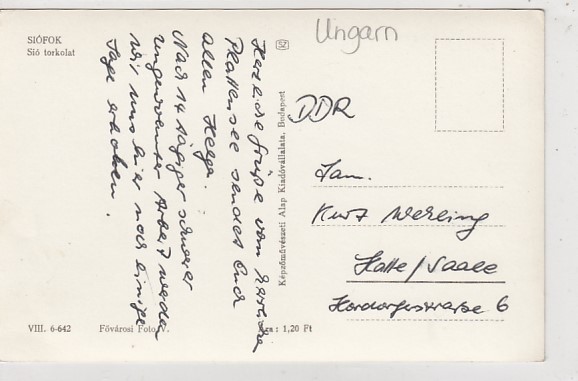 SIÓFOK
Sió torkolat
Ungarn
Herzliche Grüße vom
Plattensee sendet Euch
allen Helga.
Nach 14 tägiger schwerer
ungewohnter Arbeit werden
wir uns hier noch einige
Tage erholen.
Képzőművészeti Alap Kiadóvállalata, Budapest
SZ
DDR
Fam.
Kurt Wehling
Halle/Saale
Hordorferstraße 6
VIII. 6-642 Fővárosi Foto V. Ára: 1,20 Ft